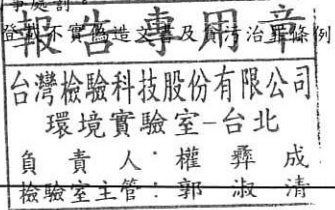 事處罰。
登載不實偽造文書及貪污治罪條例
報告專用章
台灣檢驗科技股份有限公司
環境實驗室-台北
負責人:權彞成
檢驗室主管:郭淑清